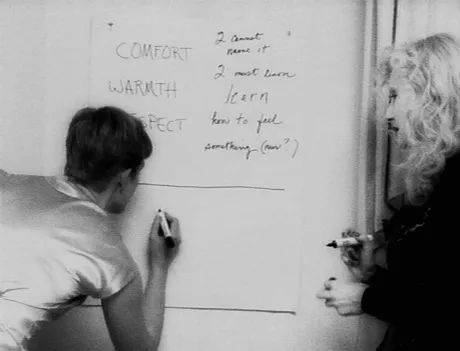 COMFORT
WARMTH
SPECT
I cannot
name it
I must learn
learn
how to feel
something (new?)